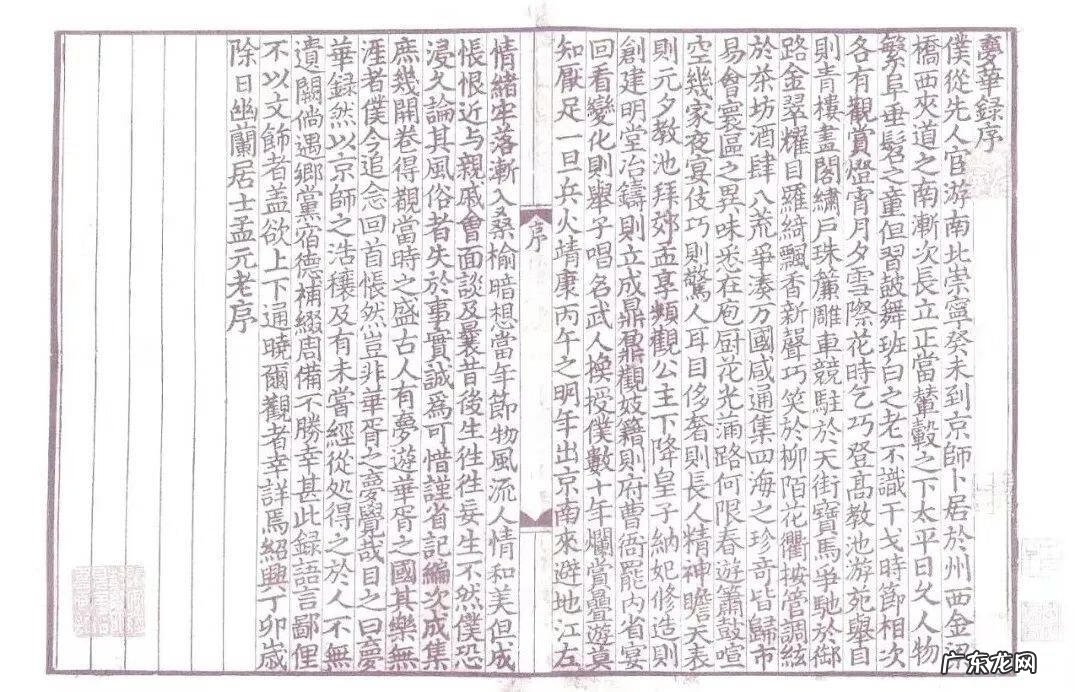 夢華録序
僕從先人官游南北崇寧癸未到京師卜居於州西金梁
橋西夾道之南漸次長立正當輦轂之下太平日久人物
繁阜垂髫之童但習鼓舞班白之老不識干戈時節相次
各有觀賞燈宵月夕雪際花時乞巧登高教池游苑舉目
則青樓畫閣繡户珠簾雕車競駐於天街寶馬爭馳於御
路金翠耀目羅綺飄香新聲巧笑於柳陌花衢按管調絃
於茶坊酒肆八荒爭湊万國咸通集四海之珍奇皆歸市
易會寰區之異味悉在庖厨花光滿路何限春遊簫鼓喧
空幾家夜宴伎巧則驚人耳目侈奢則長人精神瞻天表
則元夕教池拜郊孟享頻觀公主下降皇子納妃修造則
創建明堂冶鑄則立成鼎鼐觀妓籍則府曹衙罷内省宴
回看變化則舉子唱名武人換授僕數十年爛賞疊遊莫
知厭足一旦兵火靖康丙午之明年出京南來避地江左
序
情緒牢落漸入桑榆暗想當年節物風流人情和美但成
悵恨近与親戚會面談及曩昔後生往往妄生不然僕恐
浸久論其風俗者失於事實誠爲可惜謹省記編次成集
庶幾開卷得觀當時之盛古人有夢遊華胥之國其樂無
涯者僕今追念回首悵然豈非華胥之夢覺哉目之曰夢
華録然以京師之浩穰及有未嘗經從処得之於人不無
遺闕倘遇鄉黨宿德補綴周備不勝幸甚此録語言鄙俚
不以文飾者盖欲上下通曉爾觀者幸詳焉紹興丁卯歲
除日幽蘭居士孟元老序
广东龙网